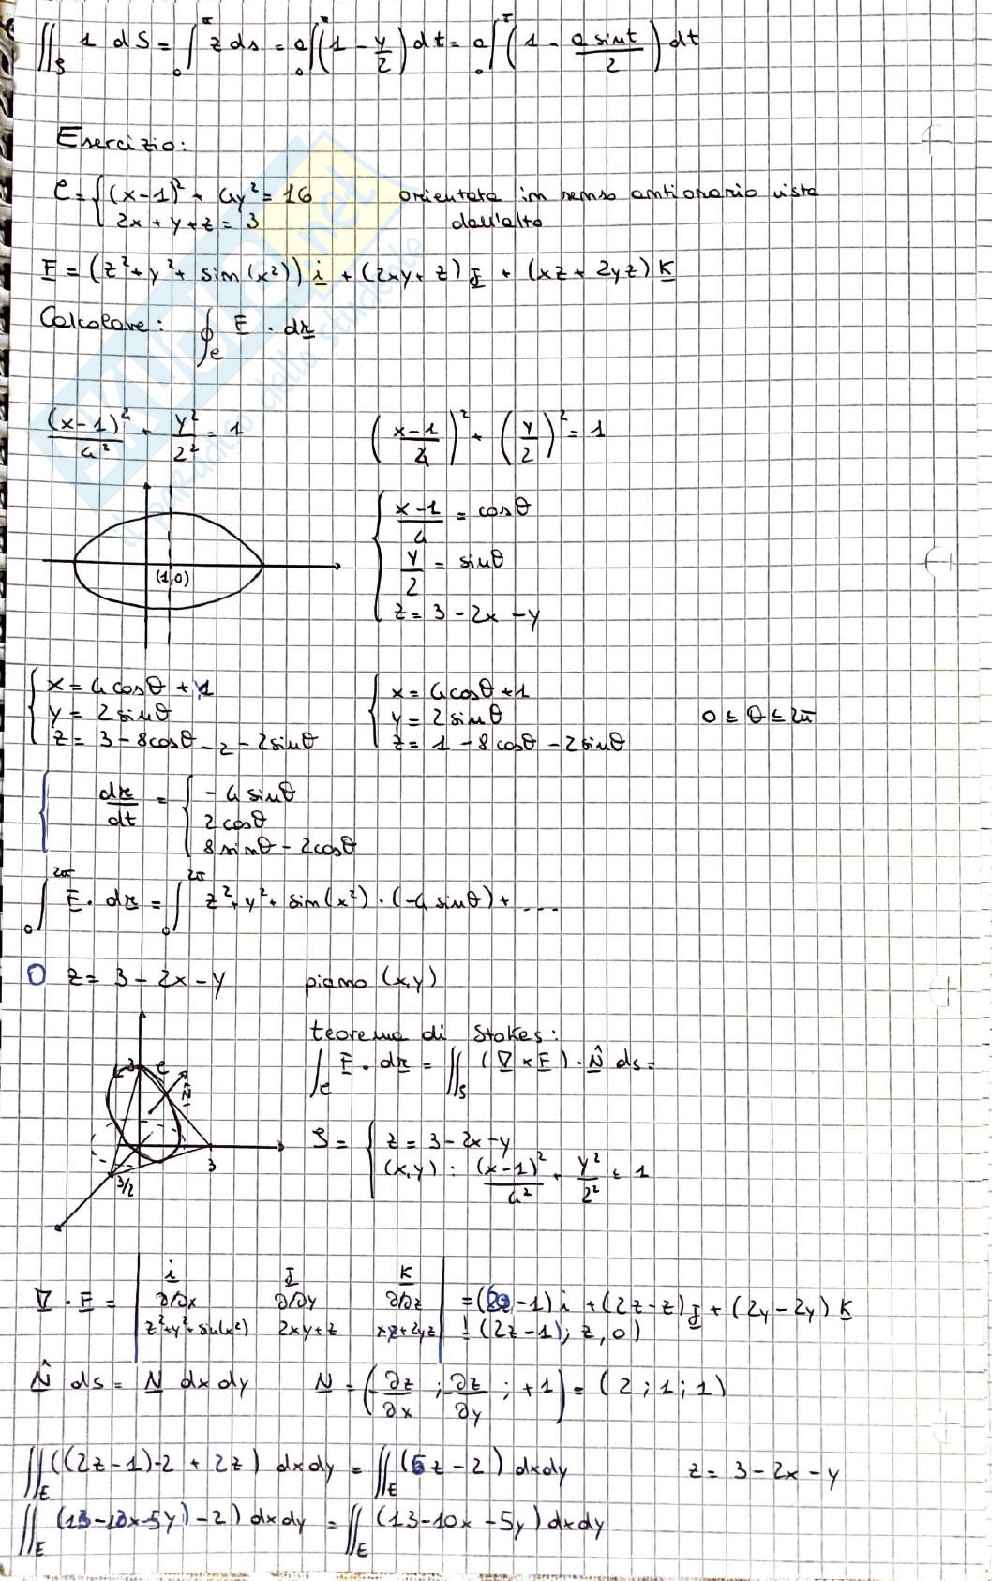 ∬_S 1 dS = ∫_0^π z ds = a∫_0^π (1 - y/2) dt = a∫_0^π (1 - a sint/2) dt
Esercizio:
C = { (x-1)² + 4y² = 16 orientata in senso antiorario vista
2x + y + z = 3 dall'alto
F = (z² + y² + sin(x²)) i + (2xy + z) J + (xz + 2yz) K
Calcolare: ∮_C F · dr
(x-1)²/4² + y²/2² = 1 ((x-1)/4)² + (y/2)² = 1
{ (x-1)/4 = cosθ
y/2 = sinθ
z = 3 - 2x - y
(1,0)
{ x = 4cosθ + 1 { x = 4cosθ + 1
y = 2sinθ y = 2sinθ 0 ≤ θ ≤ 2π
z = 3 - 8cosθ - 2 - 2sinθ z = 1 - 8cosθ - 2sinθ
{ dr/dt = { -4sinθ
2cosθ
8sinθ - 2cosθ
∫_0^2π F · dr = ∫_0^2π z² + y² + sin(x²) · (-4sinθ) + ....
O z = 3 - 2x - y piano (x,y)
teorema di Stokes:
∫_C F · dr = ∬_S (∇ × F) · N̂ ds =
3 C N̂
3
3/2
S = { z = 3 - 2x - y
(x,y) : (x-1)²/4² + y²/2² ≤ 1
i J K
∇ · F = | ∂/∂x ∂/∂y ∂/∂z | = (2z - 1) i + (2z - z) J + (2y - 2y) K
z² + y² + sin(x²) 2xy + z xz + 2yz ! (2z - 1); z, 0)
N̂ ds = N dxdy N = (-∂z/∂x ; ∂z/∂y ; +1) = (2 ; 1 ; 1)
∬_E ((2z - 1)·2 + 2z) dxdy = ∬_E (5z - 2) dxdy z = 3 - 2x - y
∬_E (15 - 10x - 5y) - 2) dxdy = ∬_E (13 - 10x - 5y) dxdy